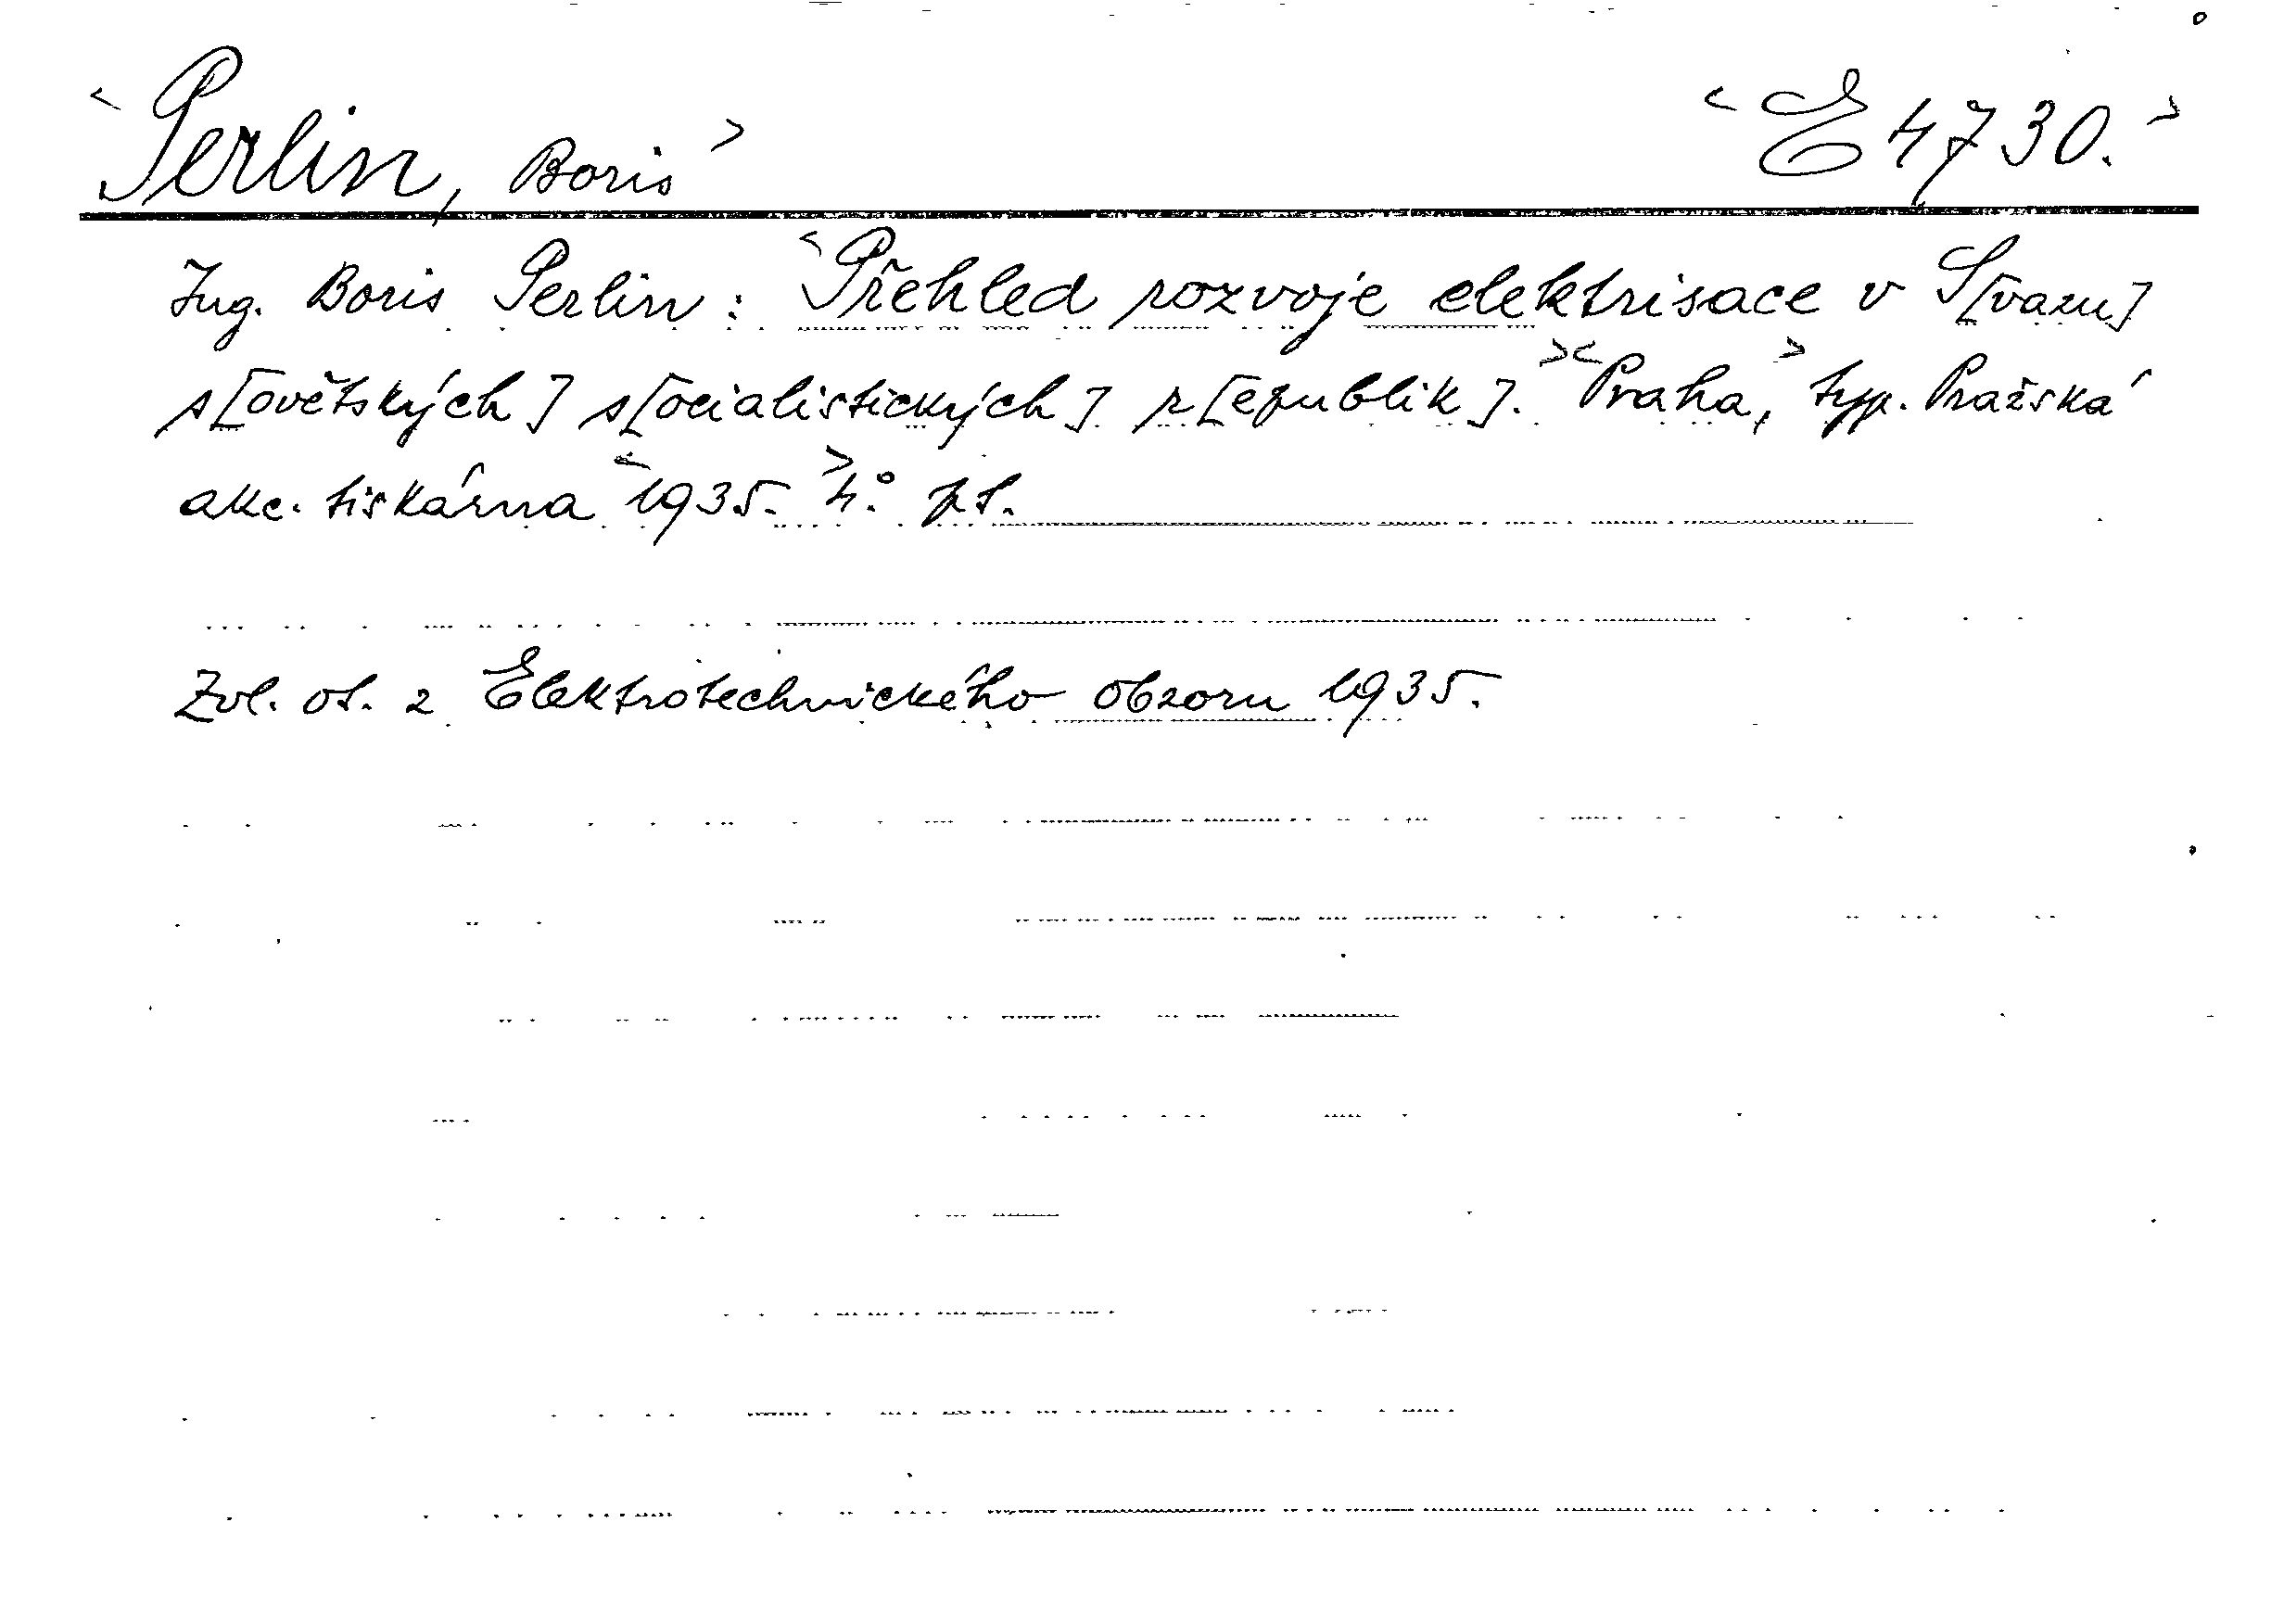 <Perlin, Boris> <E 4730.>
Ing. Boris Perlin: <Přehled rozvoje elektrisace v S[vazu]
s[ovětských] s[ocialistických] r[epublik].> <Praha,> typ. Pražská
akc. tiskárna <1935.> 4.° pt.
Zvl. ot. z Elektrotechnického obzoru 1935.